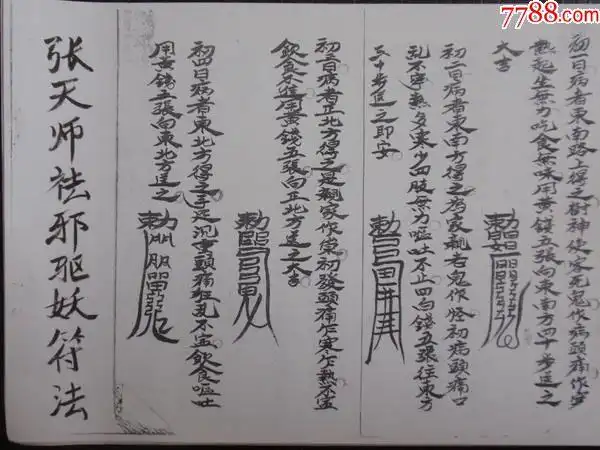 7788.com
初一日病者東南路上得之樹神使客死鬼作病頭痛作寒
熱起坐無力吃食無味用黃錢五張向東南方四十步送之
大吉
初二日病者東南方得之
家親老鬼作怪初病頭痛口
乱不寧熱多寒少四肢無力嘔吐不止用白錢五張往東方
三十步送之即安
初三日病者正北方得之是親家作祟初發頭痛乍寒乍熱不宜
飲食不進用黃錢五張向正北方送之大吉
初四日病者東北方得之手足沉重頭痛狂乱不宜飲食嘔吐
用黃錢五張向東北方送之
张天师祛邪驱妖符法